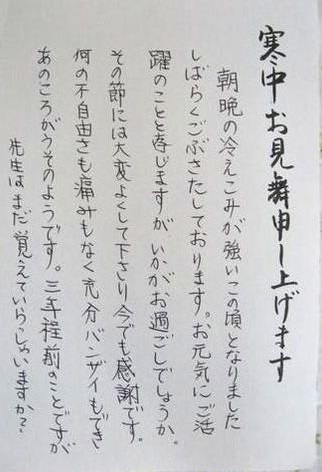 寒中お見舞申し上げます
朝晩の冷えこみが強いこの頃となりました
しばらくごぶさたしております。お元気にご活
躍のことと存じますが、いかがお過ごしでしょうか。
その節には大変よくして下さり今でも感謝です。
何の不自由さも痛みもなく充分バンザイもでき
あのころがうそのようです。三年程前のことですが
先生はまだ覚えていらっしゃいますか？